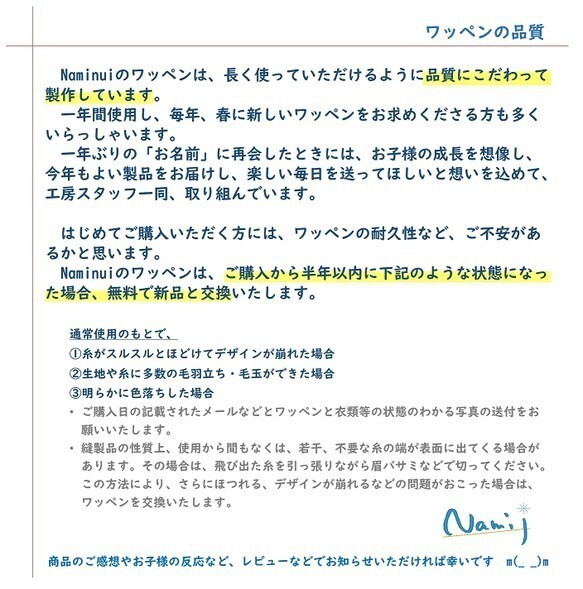 ワッペンの品質
Naminuiのワッペンは、長く使っていただけるように品質にこだわって
製作しています。
一年間使用し、毎年、春に新しいワッペンをお求めくださる方も多く
いらっしゃいます。
一年ぶりの「お名前」に再会したときには、お子様の成長を想像し、
今年もよい製品をお届けし、楽しい毎日を送ってほしいと想いを込めて、
工房スタッフ一同、取り組んでいます。
はじめてご購入いただく方には、ワッペンの耐久性など、ご不安があ
るかと思います。
Naminuiのワッペンは、ご購入から半年以内に下記のような状態になっ
た場合、無料で新品と交換いたします。
通常使用のもとで、
①糸がスルスルとほどけてデザインが崩れた場合
②生地や糸に多数の毛羽立ち・毛玉ができた場合
③明らかに色落ちした場合
・ ご購入日の記載されたメールなどとワッペンと衣類等の状態のわかる写真の送付をお
願いいたします。
・ 縫製品の性質上、使用から間もなくは、若干、不要な糸の端が表面に出てくる場合が
あります。その場合は、飛び出た糸を引っ張りながら眉バサミなどで切ってください。
この方法により、さらにほつれる、デザインが崩れるなどの問題がおこった場合は、
ワッペンを交換いたします。
Nami
商品のご感想やお子様の反応など、レビューなどでお知らせいただければ幸いです m(_ _)m